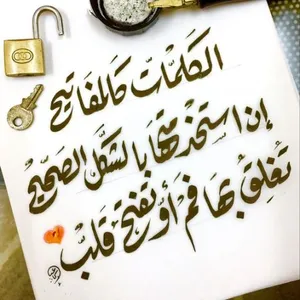 الكلمات كالمفاتيح
إن استخدمتها بالشكل الصحيح
تُغلِقُ بها فم أو تفتح قلبٌ